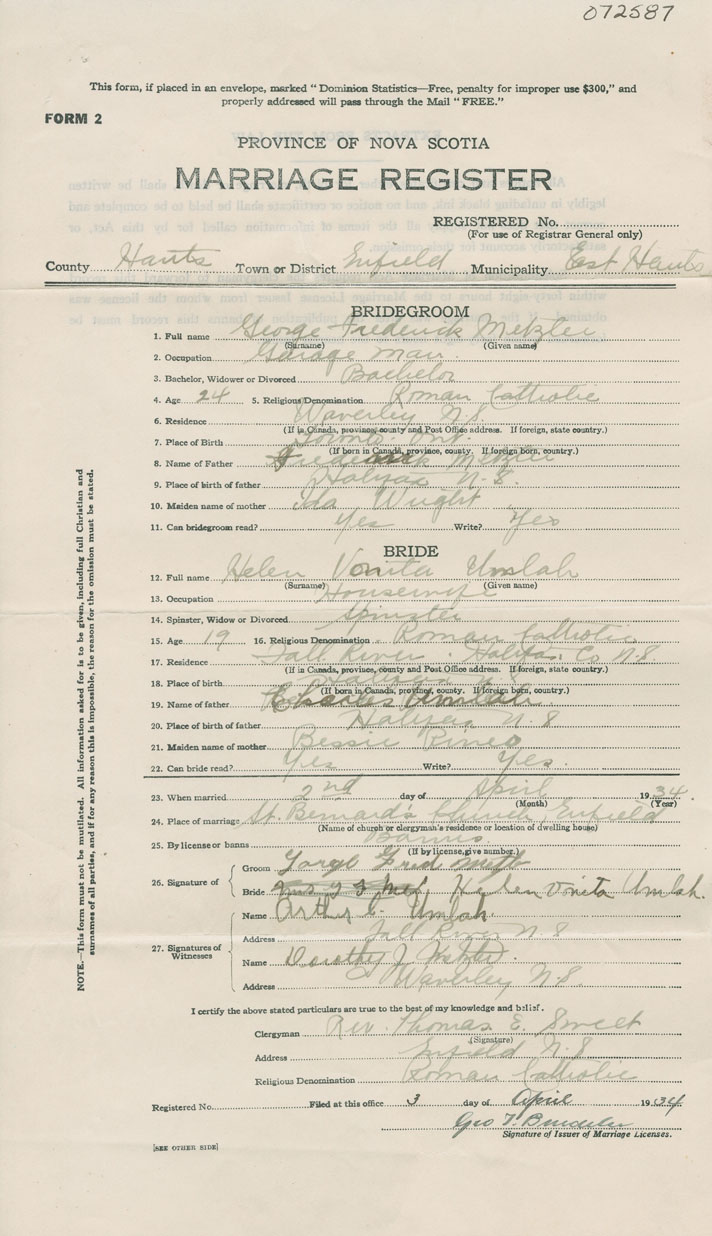 072587
This form, if placed in an envelope, marked "Dominion Statistics—Free, penalty for improper use $300," and
properly addressed will pass through the Mail "FREE."
FORM 2
PROVINCE OF NOVA SCOTIA
MARRIAGE REGISTER
REGISTERED No.
(For use of Registrar General only)
County Hants Town or District Enfield Municipality East Hants
BRIDEGROOM
1. Full name George Frederick Metzler
(Surname) (Given name)
2. Occupation Garage man
3. Bachelor, Widower or Divorced Bachelor
4. Age 24 5. Religious Denomination Roman Catholic
6. Residence Waverley N.S
(If in Canada, province, county and Post Office address. If foreign, state country.)
7. Place of Birth Toronto Ont.
(If born in Canada, province, county. If foreign born, country.)
8. Name of Father Frederick Metzler
9. Place of birth of father Halifax N.S.
10. Maiden name of mother Ida Wright
11. Can bridegroom read? Yes Write? Yes
BRIDE
12. Full name Helen Vonita Umlah
(Surname) (Given name)
13. Occupation Housewife
14. Spinster, Widow or Divorced Spinster
15. Age 19 16. Religious Denomination Roman Catholic
17. Residence Fall River Halifax Co N.S
(If in Canada, province, county and Post Office address. If foreign, state country.)
18. Place of birth Halifax N.S
(If born in Canada, province, county. If foreign born, country.)
19. Name of father Charles Umlah
20. Place of birth of father Halifax N.S
21. Maiden name of mother Bessie
22. Can bride read? Yes Write? Yes.
23. When married 2nd day of April 1934.
(Month) (Year)
24. Place of marriage St. Bernard's Church Enfield
(Name of church or clergyman's residence or location of dwelling house)
25. By license or banns Banns
(If by license, give number.)
26. Signature of Groom Fred
Bride Helen Vonita Umlah.
27. Signatures of Witnesses
Name Arthur C. Umlah.
Address Fall River N.S
Name Dorothy J. Metzler.
Address Waverley N.S.
I certify the above stated particulars are true to the best of my knowledge and belief.
Clergyman Rev. Thomas E. Sweet
(Signature)
Address Enfield N.S
Religious Denomination Roman Catholic
Registered No. Filed at this office 3 day of April 1934
Geo T.
Signature of Issuer of Marriage Licenses.
[SEE OTHER SIDE]
NOTE.—This form must not be mutilated. All information asked for is to be given, including full Christian and
surnames of all parties, and if for any reason this is impossible, the reason for the omission must be stated.